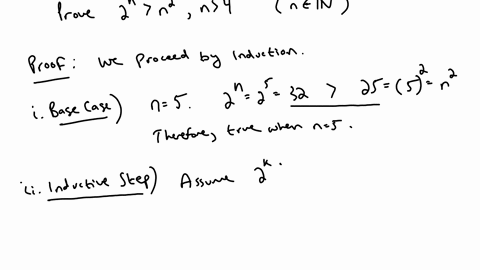 Prove 2^n > n^2 , n>4 (n∈ℕ)
Proof: We proceed by Induction.
i. Base Case) n=5. 2^n = 2^5 = 32 > 25 = (5)^2 = n^2
Therefore, true when n=5.
ii. Inductive Step) Assume 2^k